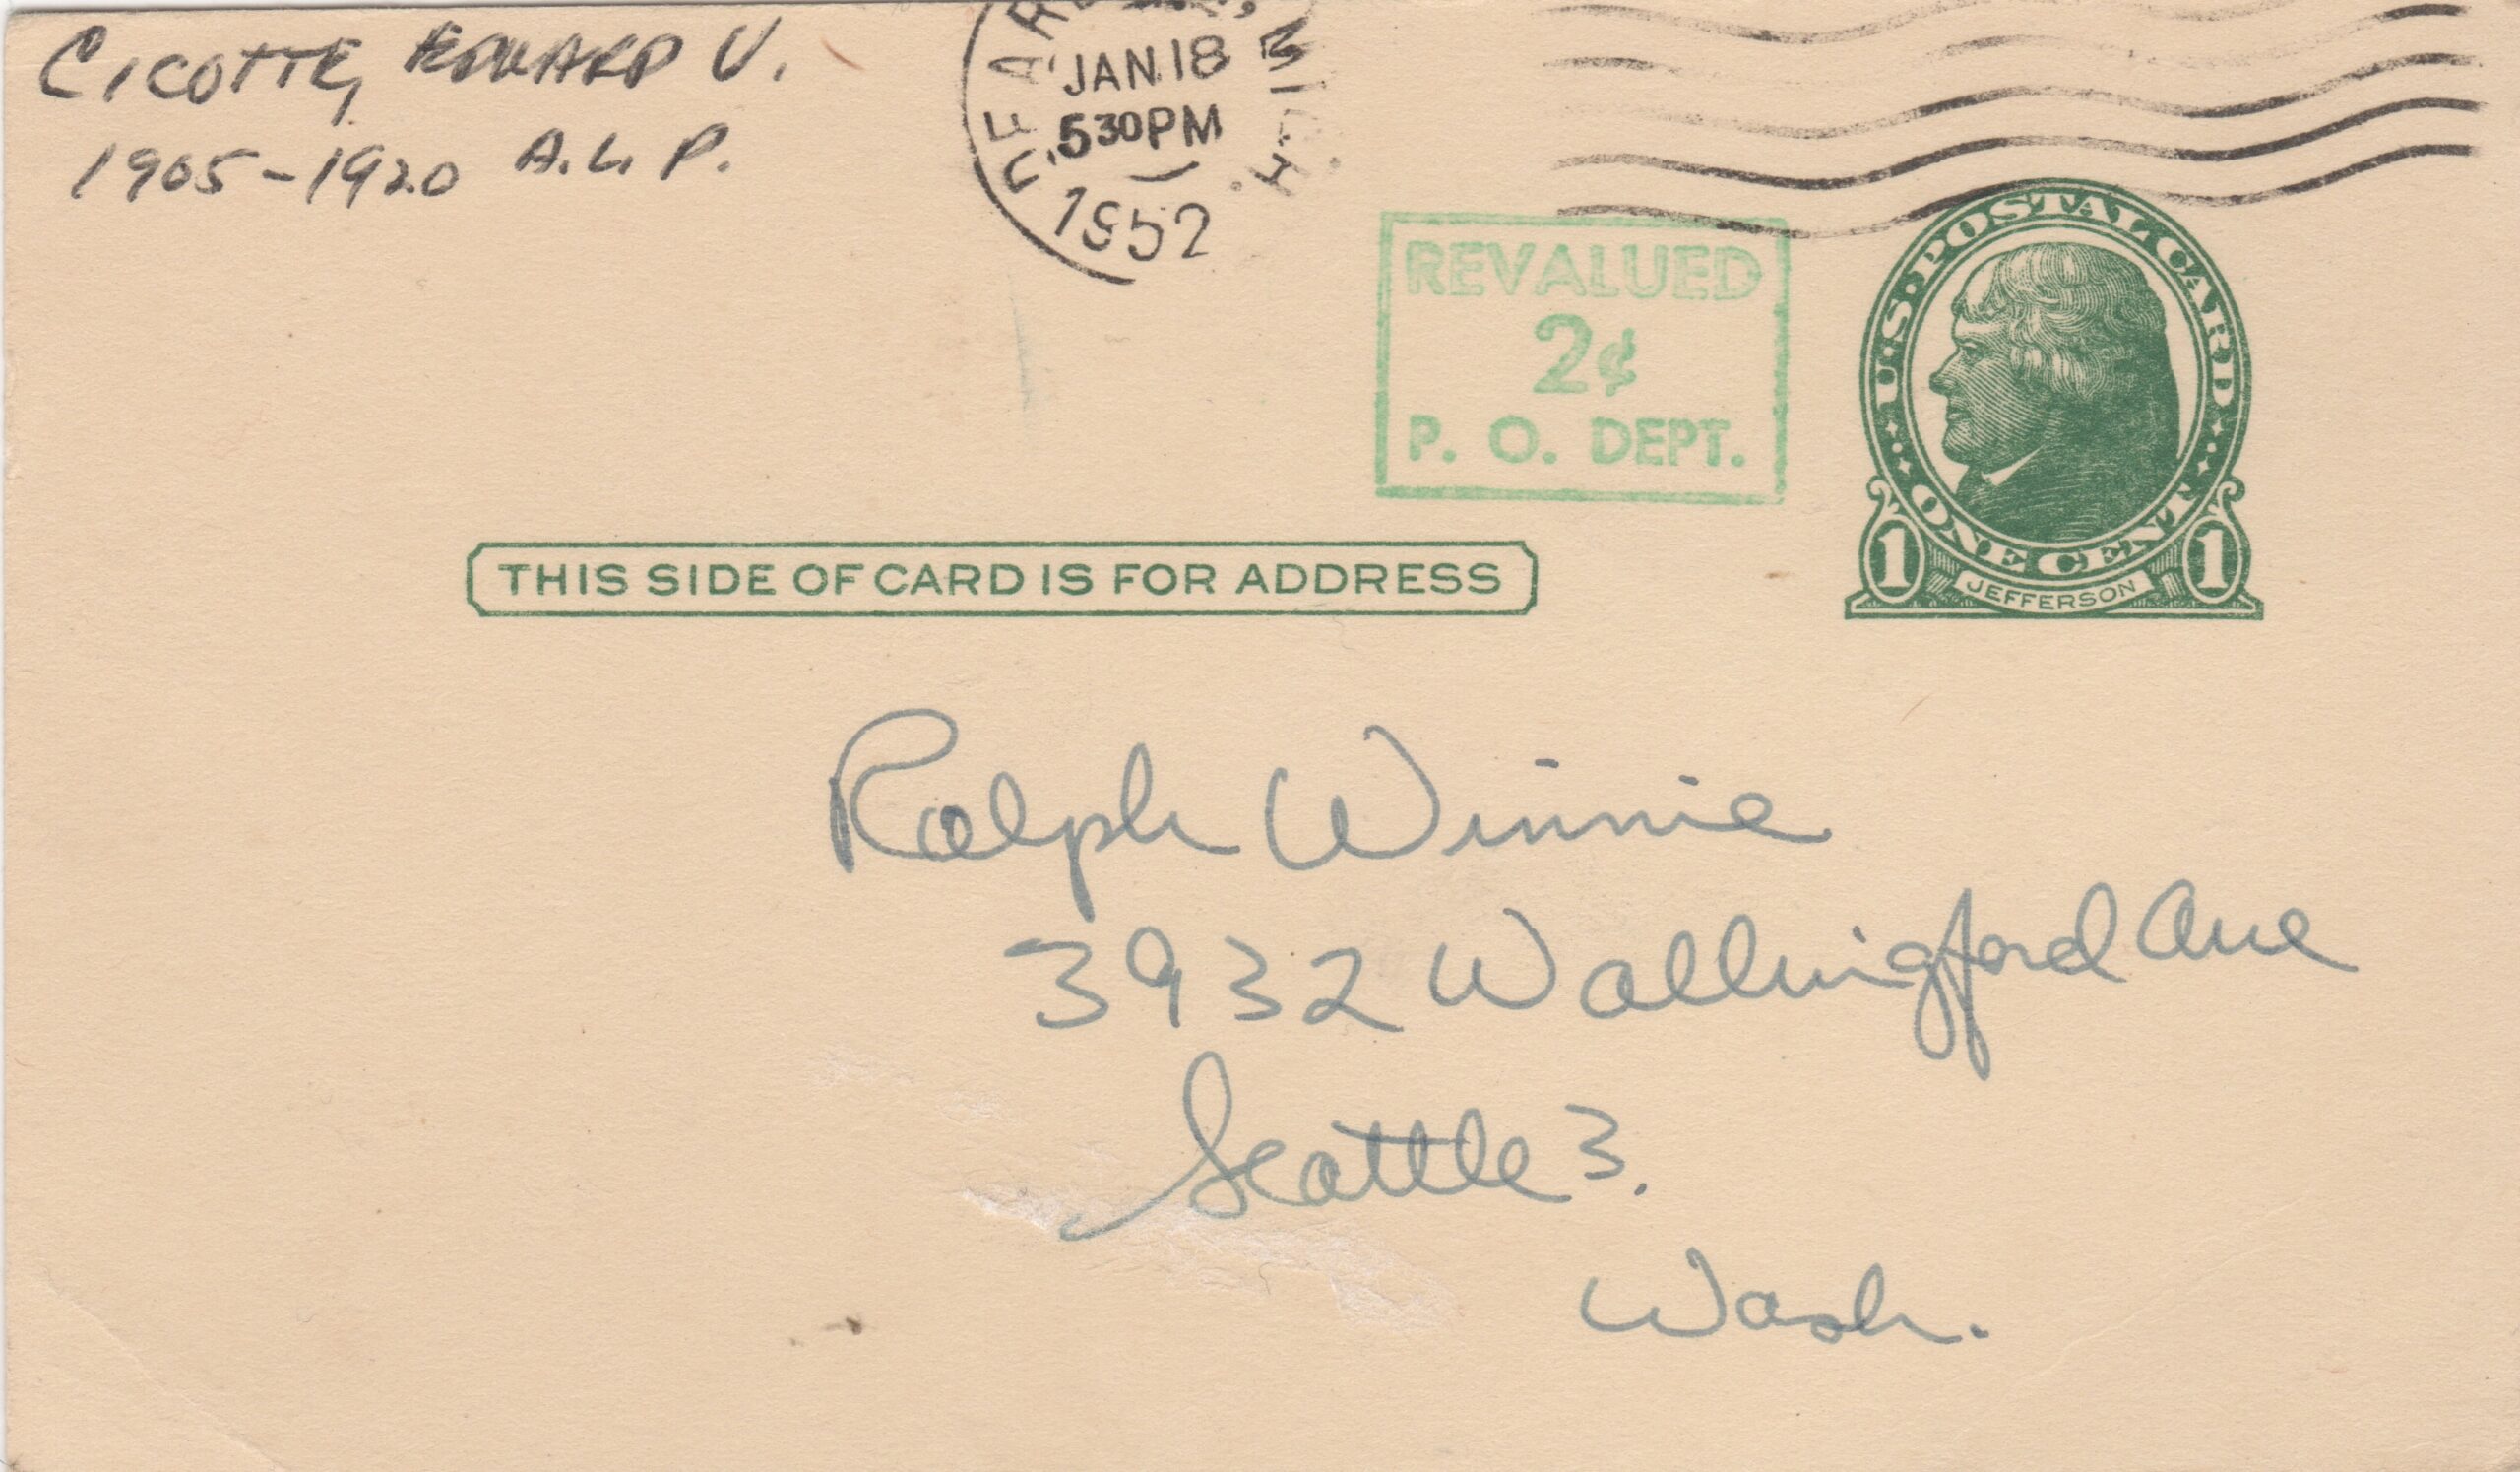 CICOTTE, EDWARD V.
1905-1920 A.L.P.
MICH.
JAN 18
5 30 PM
1952
REVALUED
2¢
P. O. DEPT.
U.S. POSTAL CARD
ONE CENT
1 1
JEFFERSON
THIS SIDE OF CARD IS FOR ADDRESS
Ralph Winnie
3932 Wallingford Ave
Seattle 3.
Wash.